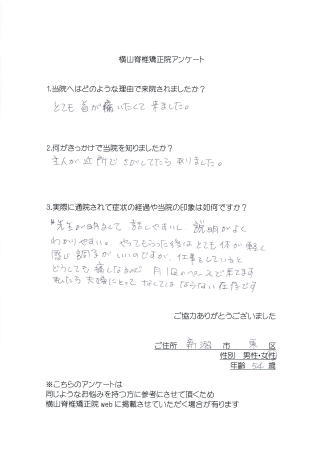 横山脊椎矯正院アンケート
1.当院へはどのような理由で来院されましたか?
とても首が痛いたくて来ました。
2.何がきっかけで当院を知りましたか?
主人が近所でさがしてたら知りました。
3.実際に通院されて症状の経過や当院の印象は如何ですか?
先生が明るくて 話しやすいし 説明がよく
わかりやすい。やってもらった後はとても体が軽く
感じ調子がいいのですが、仕事をしていると
どうしても痛くなるので 月1回のペースで来てます
私たち夫婦にとって なくてはならない存在です
ご協力ありがとうございました
ご住所 新潟 市 東 区
性別 男性・女性
年齢 54 歳
※こちらのアンケートは
同じようなお悩みを持つ方に参考にさせて頂くため
横山脊椎矯正院 web に掲載させていただく場合が有ります